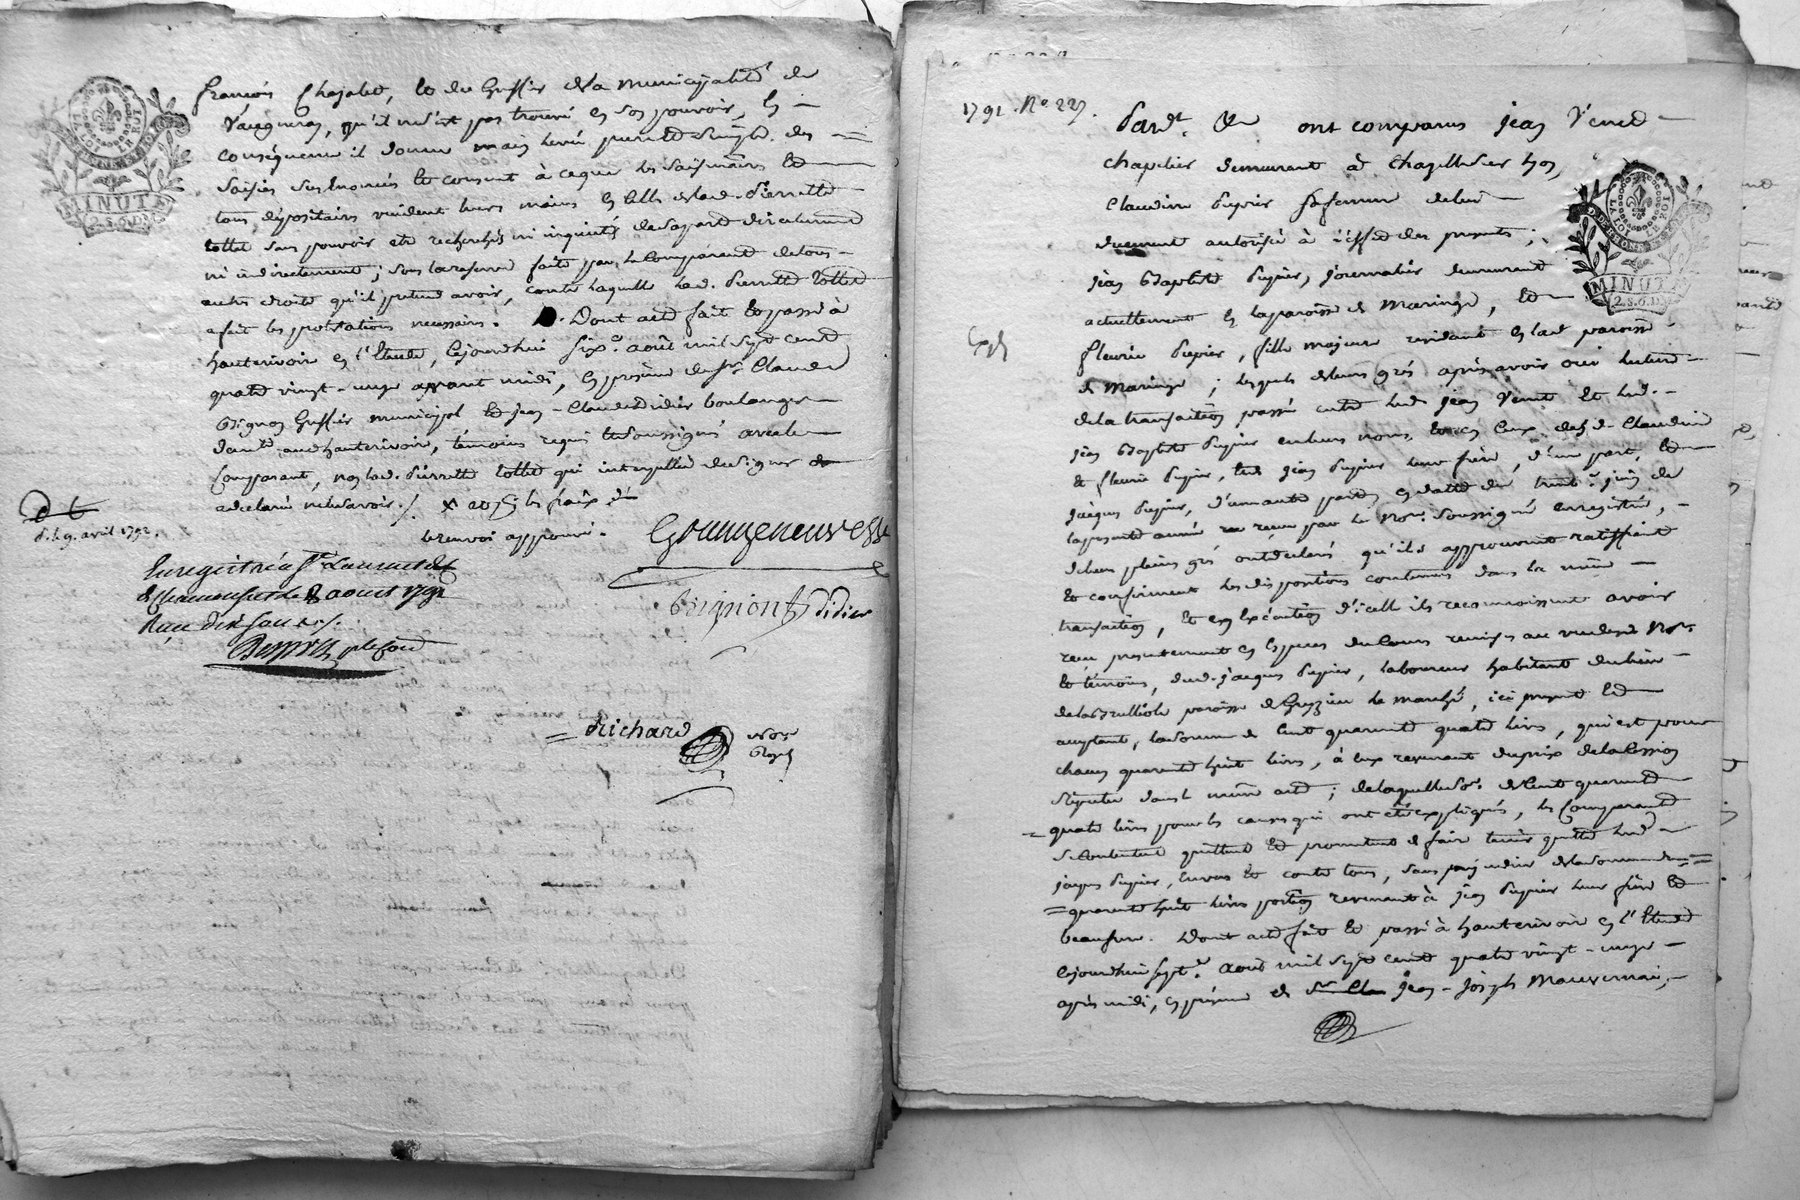 françois Chazalet, le dit Greffier de la municipalité de
Vaugneray, qu'il ne s'est pas trouvé en son pouvoir, en
conséquence il donne main levée pure et simple des
saisies susénoncées et consent à ce que les saisissants et
tous dépositaires vuident leurs mains en celle de lad. Pierrette
tollet sans pouvoir etre recherchés ni inquietés de sa part directement
ni indirectement; sous la reserve faite par le comparant de tous
autres droits qu'il pretend avoir, contre laquelle lad. Pierrette tollet
a fait les protestations necessaires. Dont acte fait et passé à
hauterivoir en l'Etude, cejourdhui six.e août mil sept cent
quatre vingt-onze avant midi, en présence de sr. Claude
Brignon Greffier municipal et jean-Claude Didier boulanger
dud. hauterivoir, témoins requis et soussignés avec le
comparant, non lad. Pierrette tollet qui interpellée de signer
a declaré ne le savoir ./.
le renvoi approuvé.
d. le 9. avril 1792.
Grangeneuve
Brignon Didier
Enregistré à St. Laurent
de Chamousset le 8 aoust 1791
Reçu dix sous ./.
Richard
Nore
Royal
1791. No. 227.
Pardt. &a ont comparus jean Venet
chapelier demeurant à Chazelle sur Lyon,
Claudine Pupier sa femme de lui
duement autorisée à l'effet des presentes;
jean Baptiste Pupier, journalier demeurant
actuellement en la paroisse de Maringe, et
fleurie Pupier, fille majeure residant en lad. paroisse
de Maringe; lesquels de leurs grés après avoir oui lecture
de la transaction passée entre led. jean Venet et led.
jean Baptiste Pupier en leurs noms, et en ceux desd. Claudine
et fleurie Pupier, et jean Pupier leur frère, d'une part, et
jacques Pupier, d'autre part, en datte du trente juin de
la presente année reçue par le Nore. soussigné enregistrée,
de leurs pleins grés ont declarés qu'ils approuvent ratiffient
et confirment les dispositions contenues dans la même
transaction, et en Exécution d'icelle ils reconnoissent avoir
reçu presentement en especes du Cours remises au vu desd. Nore.
et témoins, dud. jacques Pupier, laboureur habitant du lieu
de la Brulliole paroisse de Grézieu le marché, ici present et
acceptant, la somme de Cent quarante quatre livres, qui est pour
chacun quarante huit livres, à eux revenant du prix de la Cession
stipulée dans le même acte; de laquelle so. de Cent quarante
quatre livres pour les causes qui ont été expliquées, les Comparants
se contentent quittent et promettent de faire tenir quitte led.
jacques Pupier, Envers et contre tous, sans prejudice de la somme de
quarante huit livres portion revenant à jean Pupier leur frère et
beaufrere. Dont acte fait et passé à hauterivoir en l'Etude
cejourdhui sept.e aout mil sept cent quatre vingt-onze
après midi, en présence de jean-joseph Mauvernai,
Exp.
MINUTE
2.S.6.D.
MINUTE
2.S.6.D.
LA LOI ET LE ROI
LA LOI ET LE ROI